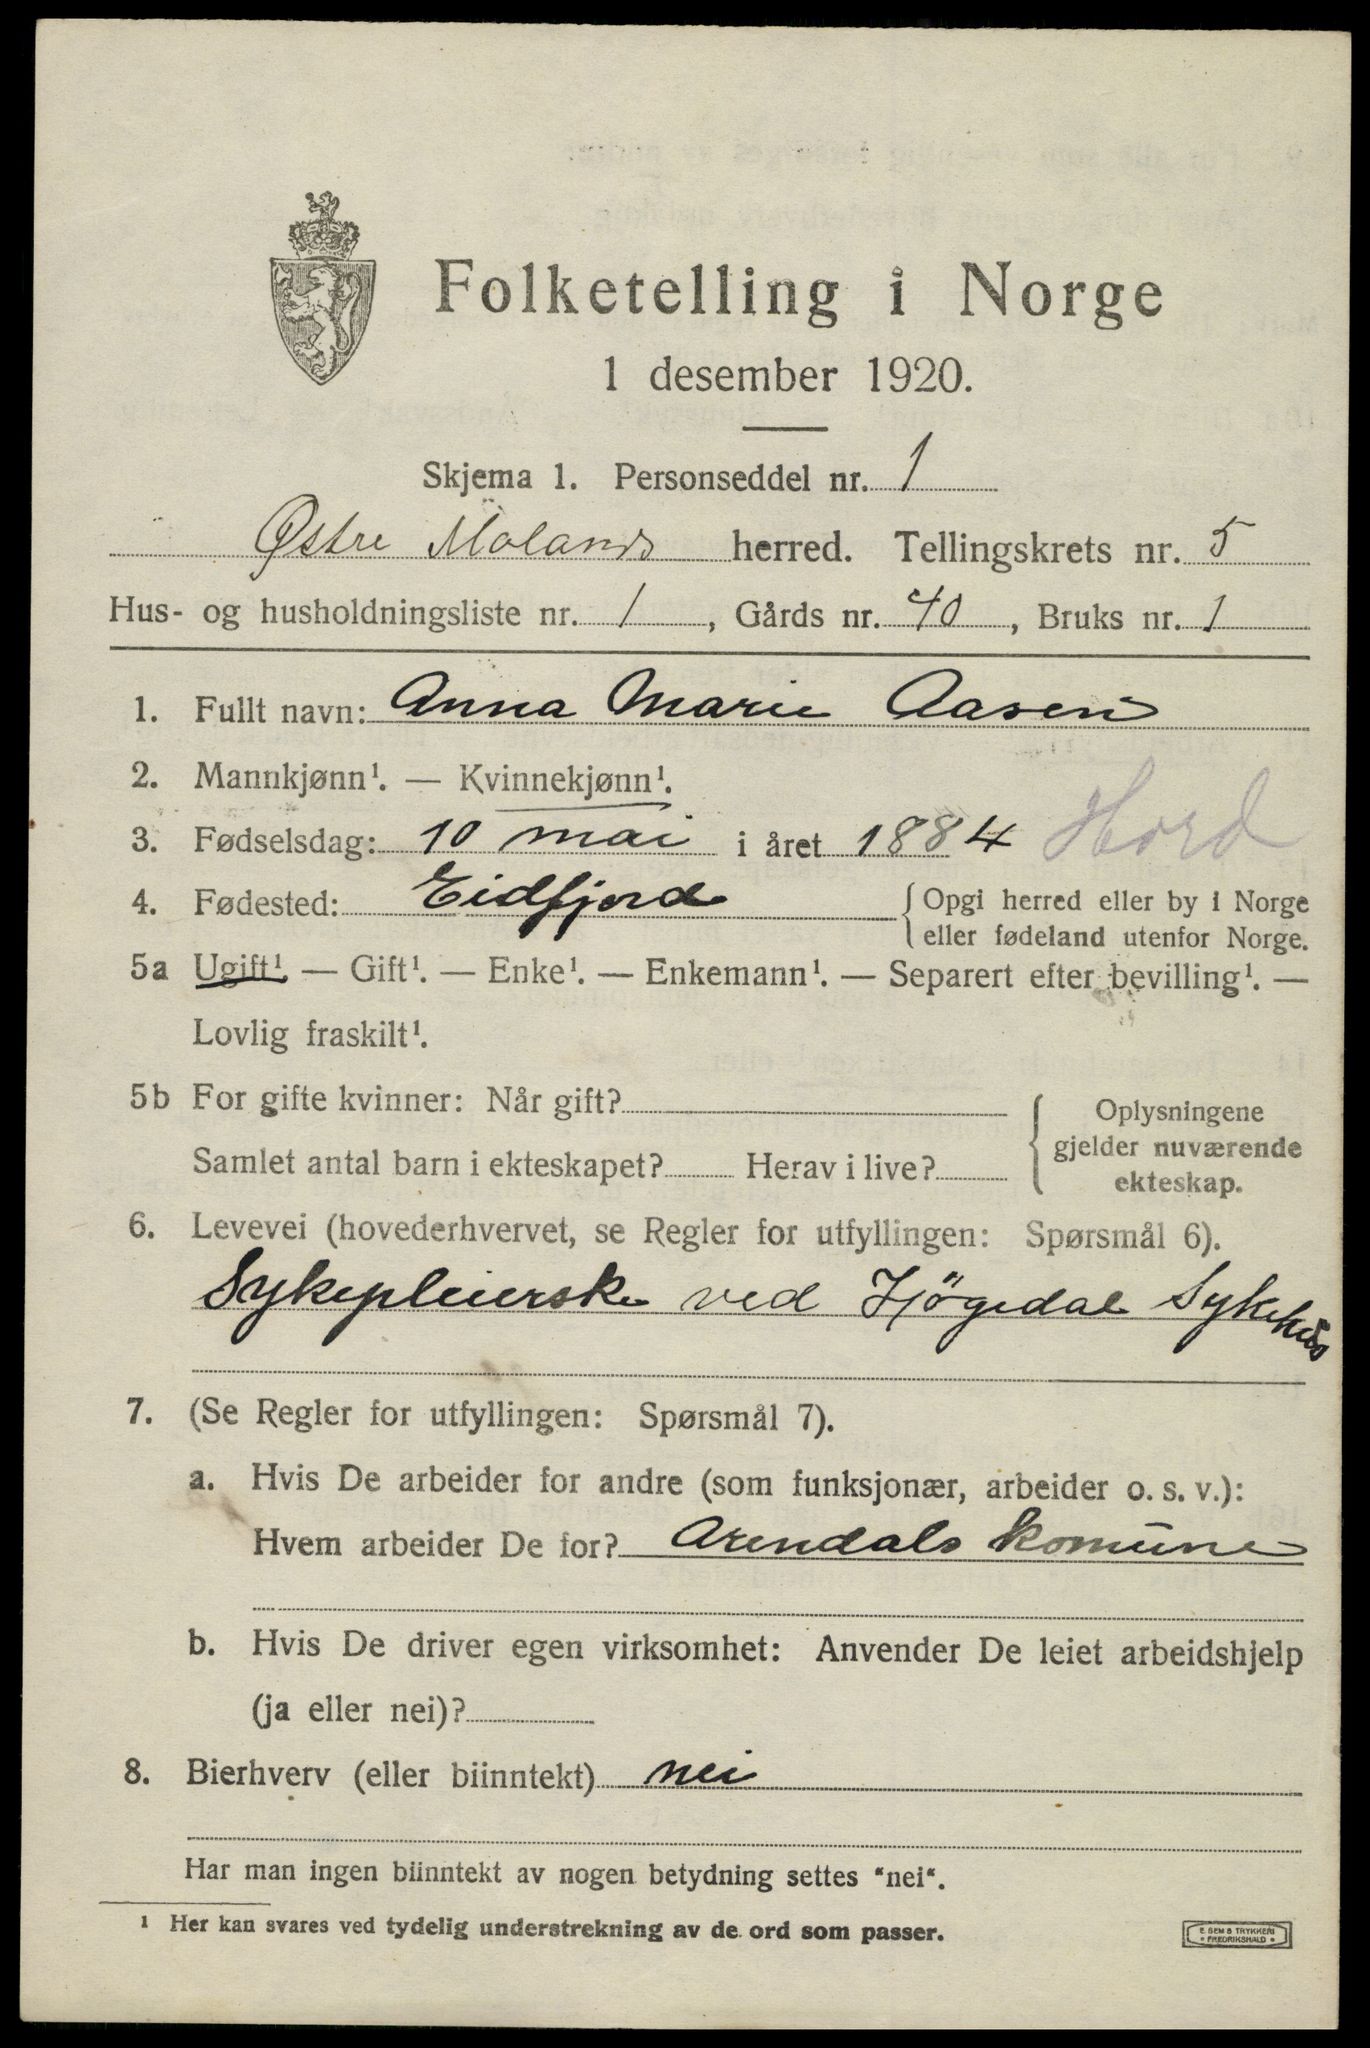 Folketelling i Norge
1 desember 1920.
Skjema 1. Personseddel nr. 1
Østre Molands herred. Tellingskrets nr. 5
Hus- og husholdningsliste nr. 1, Gårds nr. 40, Bruks nr. 1
1. Fullt navn: Anna Marie Aasen
2. Mannkjønn¹. — Kvinnekjønn¹.
3. Fødselsdag: 10 mai i året 1884 Hord
4. Fødested: Eidfjord {Opgi herred eller by i Norge
eller fødeland utenfor Norge.
5a Ugift¹ — Gift¹. — Enke¹. — Enkemann¹. — Separert efter bevilling¹. —
Lovlig fraskilt¹.
5b For gifte kvinner: Når gift? { Oplysningene
gjelder nuværende
Samlet antal barn i ekteskapet? Herav i live? ekteskap.
6. Levevei (hovederhvervet, se Regler for utfyllingen: Spørsmål 6).
Sykepleierske ved Sykehus
7. (Se Regler for utfyllingen: Spørsmål 7).
a. Hvis De arbeider for andre (som funksjonær, arbeider o. s. v.):
Hvem arbeider De for? Arendals komune
b. Hvis De driver egen virksomhet: Anvender De leiet arbeidshjelp
(ja eller nei)?
8. Bierhverv (eller biinntekt) nei
Har man ingen biinntekt av nogen betydning settes "nei".
¹ Her kan svares ved tydelig understrekning av de ord som passer.
E SEM'S TRYKKERI
FREDRIKSHALD